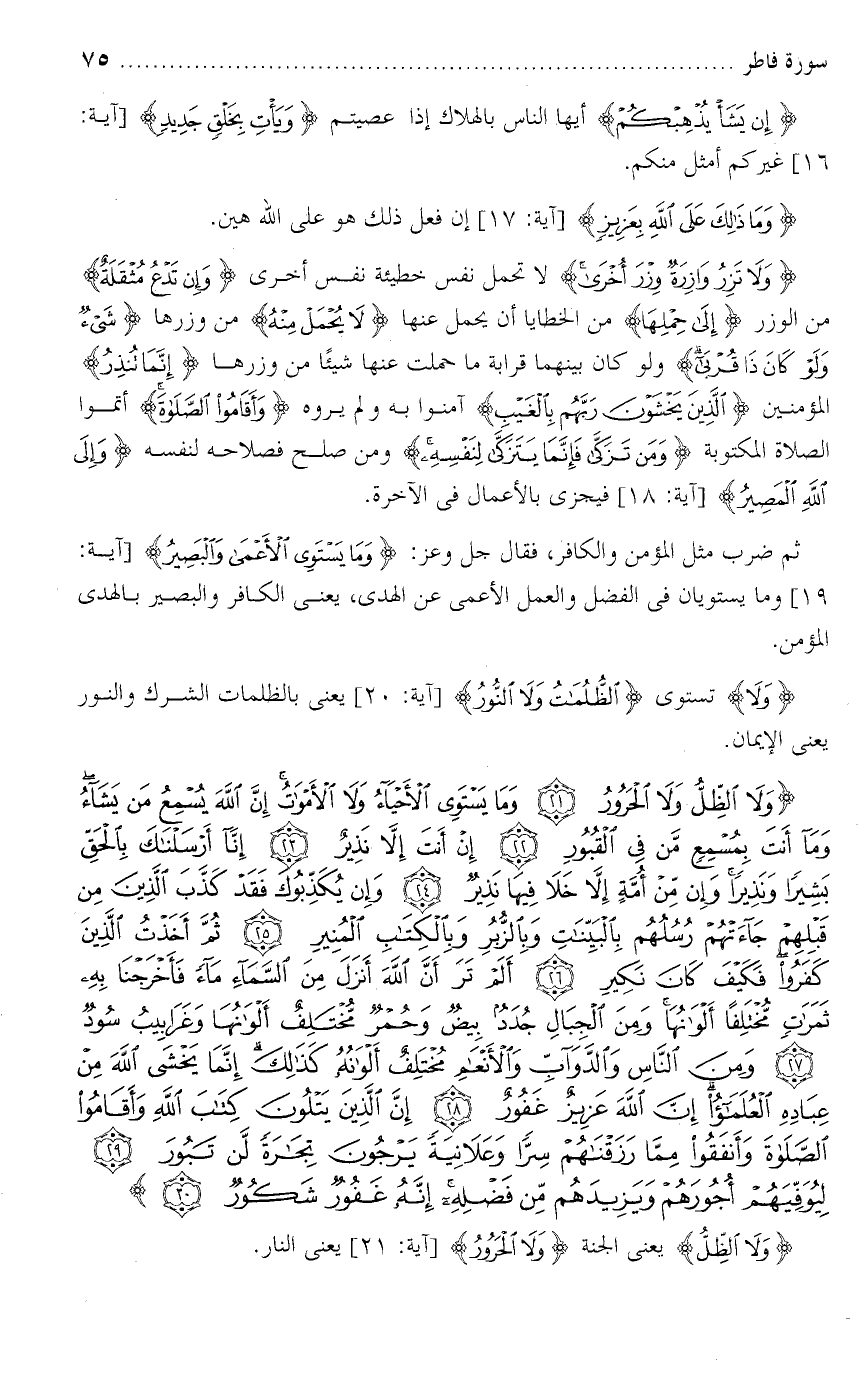 سورة فاطر ........................................................................... ٧٥
﴿ إِن يَشَأْ يُذْهِبْكُمْ ﴾ أيها الناس بالهلاك إذا عصيتم ﴿ وَيَأْتِ بِخَلْقٍ جَدِيدٍ ﴾ [آية:
١٦] غيركم أمثل منكم.
﴿ وَمَا ذَلِكَ عَلَى ٱللَّهِ بِعَزِيزٍ ﴾ [آية: ١٧] إن فعل ذلك هو على الله هين.
﴿ وَلَا تَزِرُ وَازِرَةٌ وِزْرَ أُخْرَىٰ ﴾ لا تحمل نفس خطيئة نفس أخرى ﴿ وَإِن تَدْعُ مُثْقَلَةٌ ﴾
من الوزر ﴿ إِلَىٰ حِمْلِهَا ﴾ من الخطايا أن يحمل عنها ﴿ لَا يُحْمَلْ مِنْهُ ﴾ من وزرها ﴿ شَىْءٌ
وَلَوْ كَانَ ذَا قُرْبَىٰٓ ﴾ ولو كان بينهما قرابة ما حملت عنها شيئًا من وزرها ﴿ إِنَّمَا تُنذِرُ ﴾
المؤمنين ﴿ ٱلَّذِينَ يَخْشَوْنَ رَبَّهُم بِٱلْغَيْبِ ﴾ آمنوا به ولم يروه ﴿ وَأَقَامُوا۟ ٱلصَّلَوٰةَ ۚ ﴾ أتموا
الصلاة المكتوبة ﴿ وَمَن تَزَكَّىٰ فَإِنَّمَا يَتَزَكَّىٰ لِنَفْسِهِۦ ۚ ﴾ ومن صلح فصلاحه لنفسه ﴿ وَإِلَى
ٱللَّهِ ٱلْمَصِيرُ ﴾ [آية: ١٨] فيجزى بالأعمال فى الآخرة.
ثم ضرب مثل المؤمن والكافر، فقال جل وعز: ﴿ وَمَا يَسْتَوِى ٱلْأَعْمَىٰ وَٱلْبَصِيرُ ﴾ [آية:
١٩] وما يستويان فى الفضل والعمل الأعمى عن الهدى، يعنى الكافر والبصير بالهدى
المؤمن.
﴿ وَلَا ﴾ تستوى ﴿ ٱلظُّلُمَٰتُ وَلَا ٱلنُّورُ ﴾ [آية: ٢٠] يعنى بالظلمات الشرك والنور
يعنى الإيمان.
﴿ وَلَا ٱلظِّلُّ وَلَا ٱلْحَرُورُ ٢١ وَمَا يَسْتَوِى ٱلْأَحْيَآءُ وَلَا ٱلْأَمْوَٰتُ ۚ إِنَّ ٱللَّهَ يُسْمِعُ مَن يَشَآءُ ۖ
وَمَآ أَنتَ بِمُسْمِعٍ مَّن فِى ٱلْقُبُورِ ٢٢ إِنْ أَنتَ إِلَّا نَذِيرٌ ٢٣ إِنَّآ أَرْسَلْنَٰكَ بِٱلْحَقِّ
بَشِيرًا وَنَذِيرًا ۚ وَإِن مِّنْ أُمَّةٍ إِلَّا خَلَا فِيهَا نَذِيرٌ ٢٤ وَإِن يُكَذِّبُوكَ فَقَدْ كَذَّبَ ٱلَّذِينَ مِن
قَبْلِهِمْ جَآءَتْهُمْ رُسُلُهُم بِٱلْبَيِّنَٰتِ وَبِٱلزُّبُرِ وَبِٱلْكِتَٰبِ ٱلْمُنِيرِ ٢٥ ثُمَّ أَخَذْتُ ٱلَّذِينَ
كَفَرُوا۟ ۖ فَكَيْفَ كَانَ نَكِيرِ ٢٦ أَلَمْ تَرَ أَنَّ ٱللَّهَ أَنزَلَ مِنَ ٱلسَّمَآءِ مَآءً فَأَخْرَجْنَا بِهِۦ
ثَمَرَٰتٍ مُّخْتَلِفًا أَلْوَٰنُهَا ۚ وَمِنَ ٱلْجِبَالِ جُدَدٌۢ بِيضٌ وَحُمْرٌ مُّخْتَلِفٌ أَلْوَٰنُهَا وَغَرَابِيبُ سُودٌ
٢٧ وَمِنَ ٱلنَّاسِ وَٱلدَّوَآبِّ وَٱلْأَنْعَٰمِ مُخْتَلِفٌ أَلْوَٰنُهُۥ كَذَٰلِكَ ۗ إِنَّمَا يَخْشَى ٱللَّهَ مِنْ
عِبَادِهِ ٱلْعُلَمَٰٓؤُا۟ ۗ إِنَّ ٱللَّهَ عَزِيزٌ غَفُورٌ ٢٨ إِنَّ ٱلَّذِينَ يَتْلُونَ كِتَٰبَ ٱللَّهِ وَأَقَامُوا۟
ٱلصَّلَوٰةَ وَأَنفَقُوا۟ مِمَّا رَزَقْنَٰهُمْ سِرًّا وَعَلَانِيَةً يَرْجُونَ تِجَٰرَةً لَّن تَبُورَ ٢٩
لِيُوَفِّيَهُمْ أُجُورَهُمْ وَيَزِيدَهُم مِّن فَضْلِهِۦٓ ۚ إِنَّهُۥ غَفُورٌ شَكُورٌ ٣٠ ﴾
﴿ وَلَا ٱلظِّلُّ ﴾ يعنى الجنة ﴿ وَلَا ٱلْحَرُورُ ﴾ [آية: ٢١] يعنى النار.